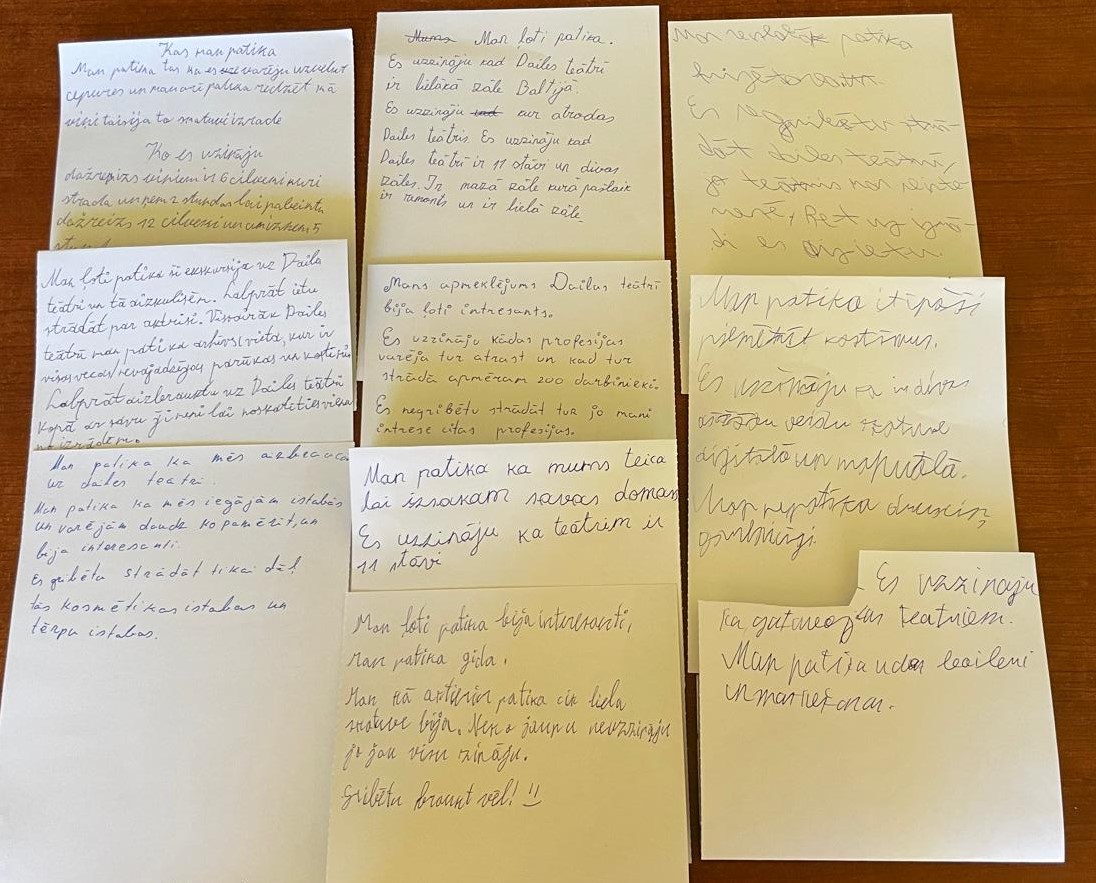 Kas man patika
Man patika tas ka es varēju uzvilkt
cepures un man arī patika redzēt kā
viņi taisija to skatuvi izrāde
Ko es uzināju
dažreizs viņiem ir 6 cilvēki kuri
strada un ņem 2 stundas lai pabeigtu
dažreizs 12 cilveki un 5
Man ļoti patika ši ekskursija uz Daiļa
teātri un tā aizkulisēm. Labprāt ietu
strādāt par aktrisi. Visvairāk Dailes
teātrī man patika arhīvs, vieta, kur ir
visas vecās, nevajadzīgās parūkas un kostīmi.
Labprāt aizbrauktu uz Dailes teātri
kopā ar savu ģimeni lai noskatīties vienu
no izrādēm.
Man patika ka mēs aizbraucā
uz dailes teatri.
Man patika ka mēs iegājām istabās
un varējām daudz ko pamērīt, un
bija interesanti.
Es gribētu strādāt tikai dēļ
tās kosmētikas istabas un
tērpu istabas.
Mums Man ļoti patika.
Es uzzināju kad Dailes teātrī
ir lielākā zāle Baltijā.
Es uzzināju kad kur atrodas
Dailes teātris. Es uzzināju kad
Dailes teātrī ir 11 stāvi un divas
zāles. Ir mazā zāle kurā pašlaik
ir remonts un ir lielā zāle.
Mans apmeklējums Dailus teātrī
bija ļoti intresants.
Es uzzināju kādas profesijas
varēja tur atrast un kad tur
strādā apmēram 200 darbinieki.
Es negribētu strādāt tur jo mani
intrese citas profesijas.
Man patika ka mums teica
lai izsakam savas domas
Es uzzināju ka teātrim ir
11 stāvi
Man ļoti patika bija interesanti,
man patika gida.
Man kā patika cik liela
skatuve bija. Neko jaunu neuzzināju
jo jau visu zināju.
Gribētu braukt vēl! !!
Man patika
Es
dāt dailes teātrī,
jo teātris man
Bet uz
di es aizietu.
Man patika it īpaši
piemērīt kostīmus.
Es uzzināju ka ir divas
veidu skatuve
digitālā un manuālā.
Man nepatika drusciņ
garlaicīgi.
Es uzzinaju
ka teatriem.
Man patika
un